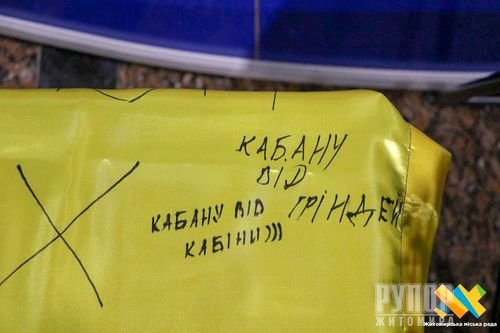 КАБАНУ
ВІД
ГРІНДЕЙ
КАБАНУ ВІД
КАБІНИ)))
РУПОР
ЖИТОМИРА
Житомирська міська рада